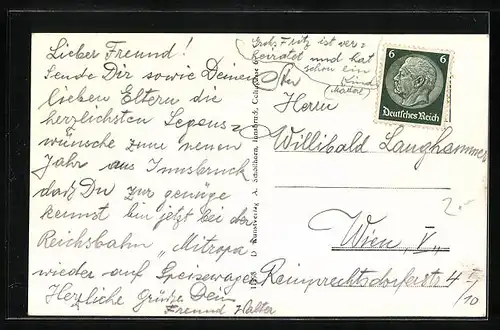 Lieber Freund!
Sende Dir sowie Deinen
lieben Eltern die
herzlichsten Segens-
wünsche zum neuen
Jahr aus Innsbruck
das Du zur genüge
kennst bin jetzt bei der
Reichsbahn „Mitropa
wieder auf Speisewagen
Herzliche Grüße Dein
Freund Walter
Fritz ist ver-
heiratet und hat
schon ein
Kind
D Kunstverlag A. Schöllhorn, Innsbruck,
6 6
Deutsches Reich
An
Herrn
Willibald Langhammer
2.-
Wien, V.,
Reinprechtsdorferstr. 4
10